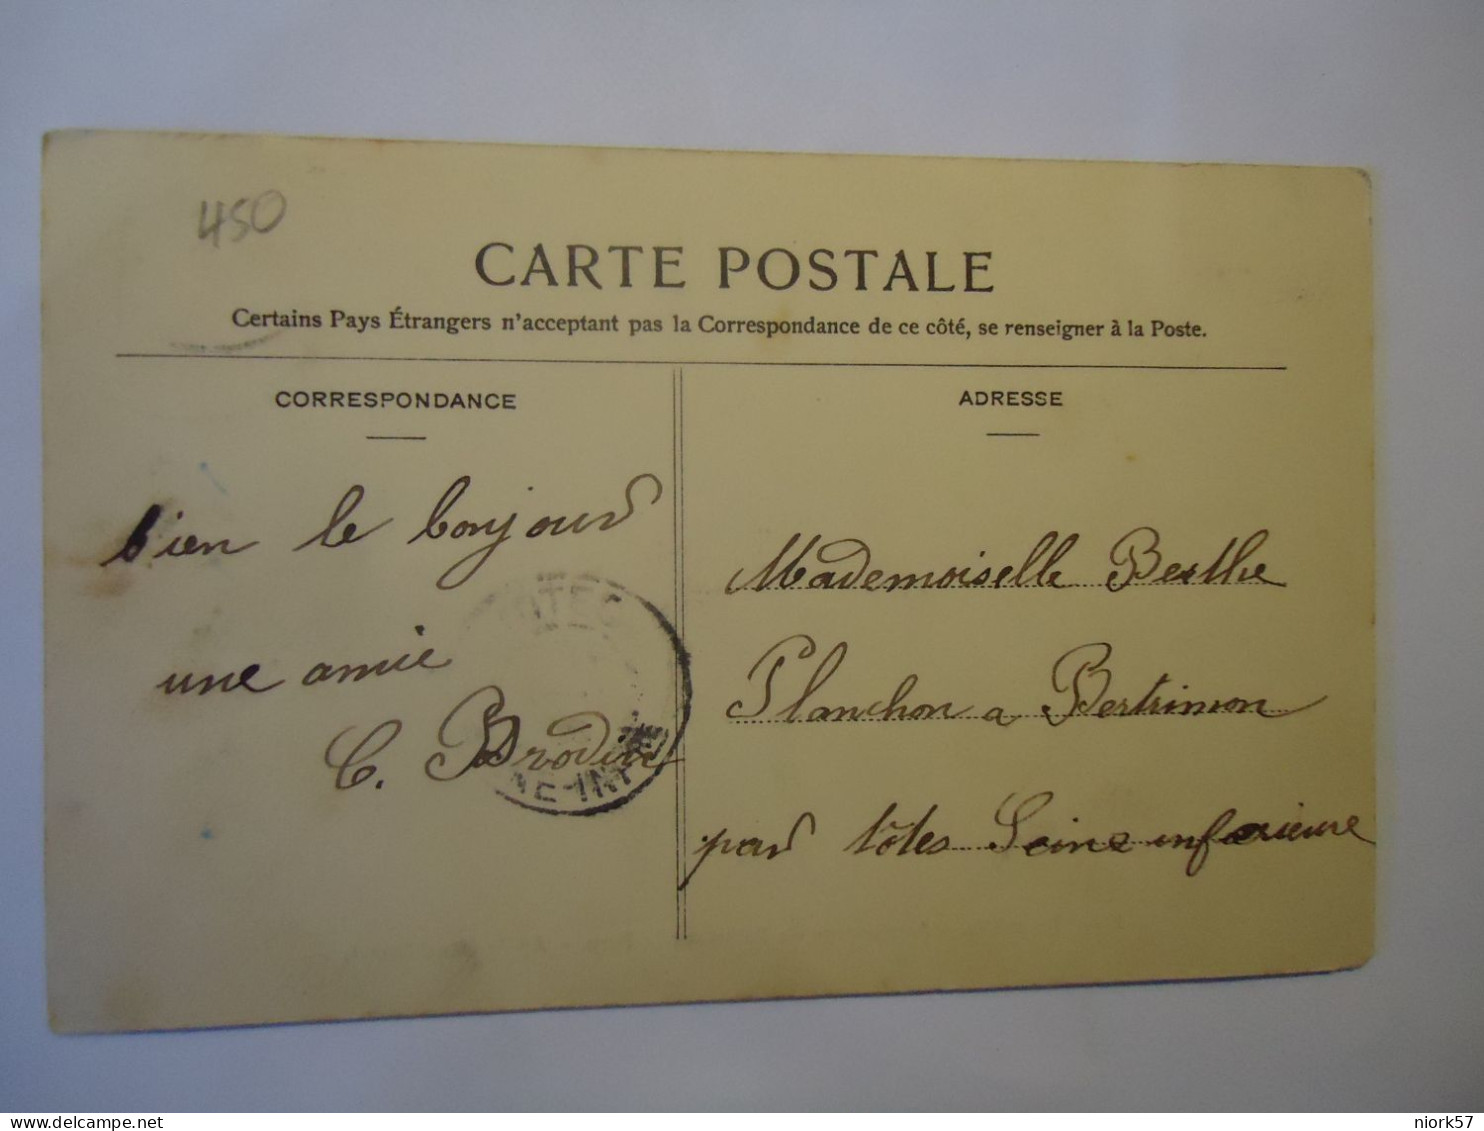 450
CARTE POSTALE
Certains Pays Étrangers n'acceptant pas la Correspondance de ce côté, se renseigner à la Poste.
CORRESPONDANCE
bien le bonjour
une amie
C. Brodin
ADRESSE
Mademoiselle Berthe
Planchon a Bertrimon
par tôtes Seine inferieure
NE-INF
niork57